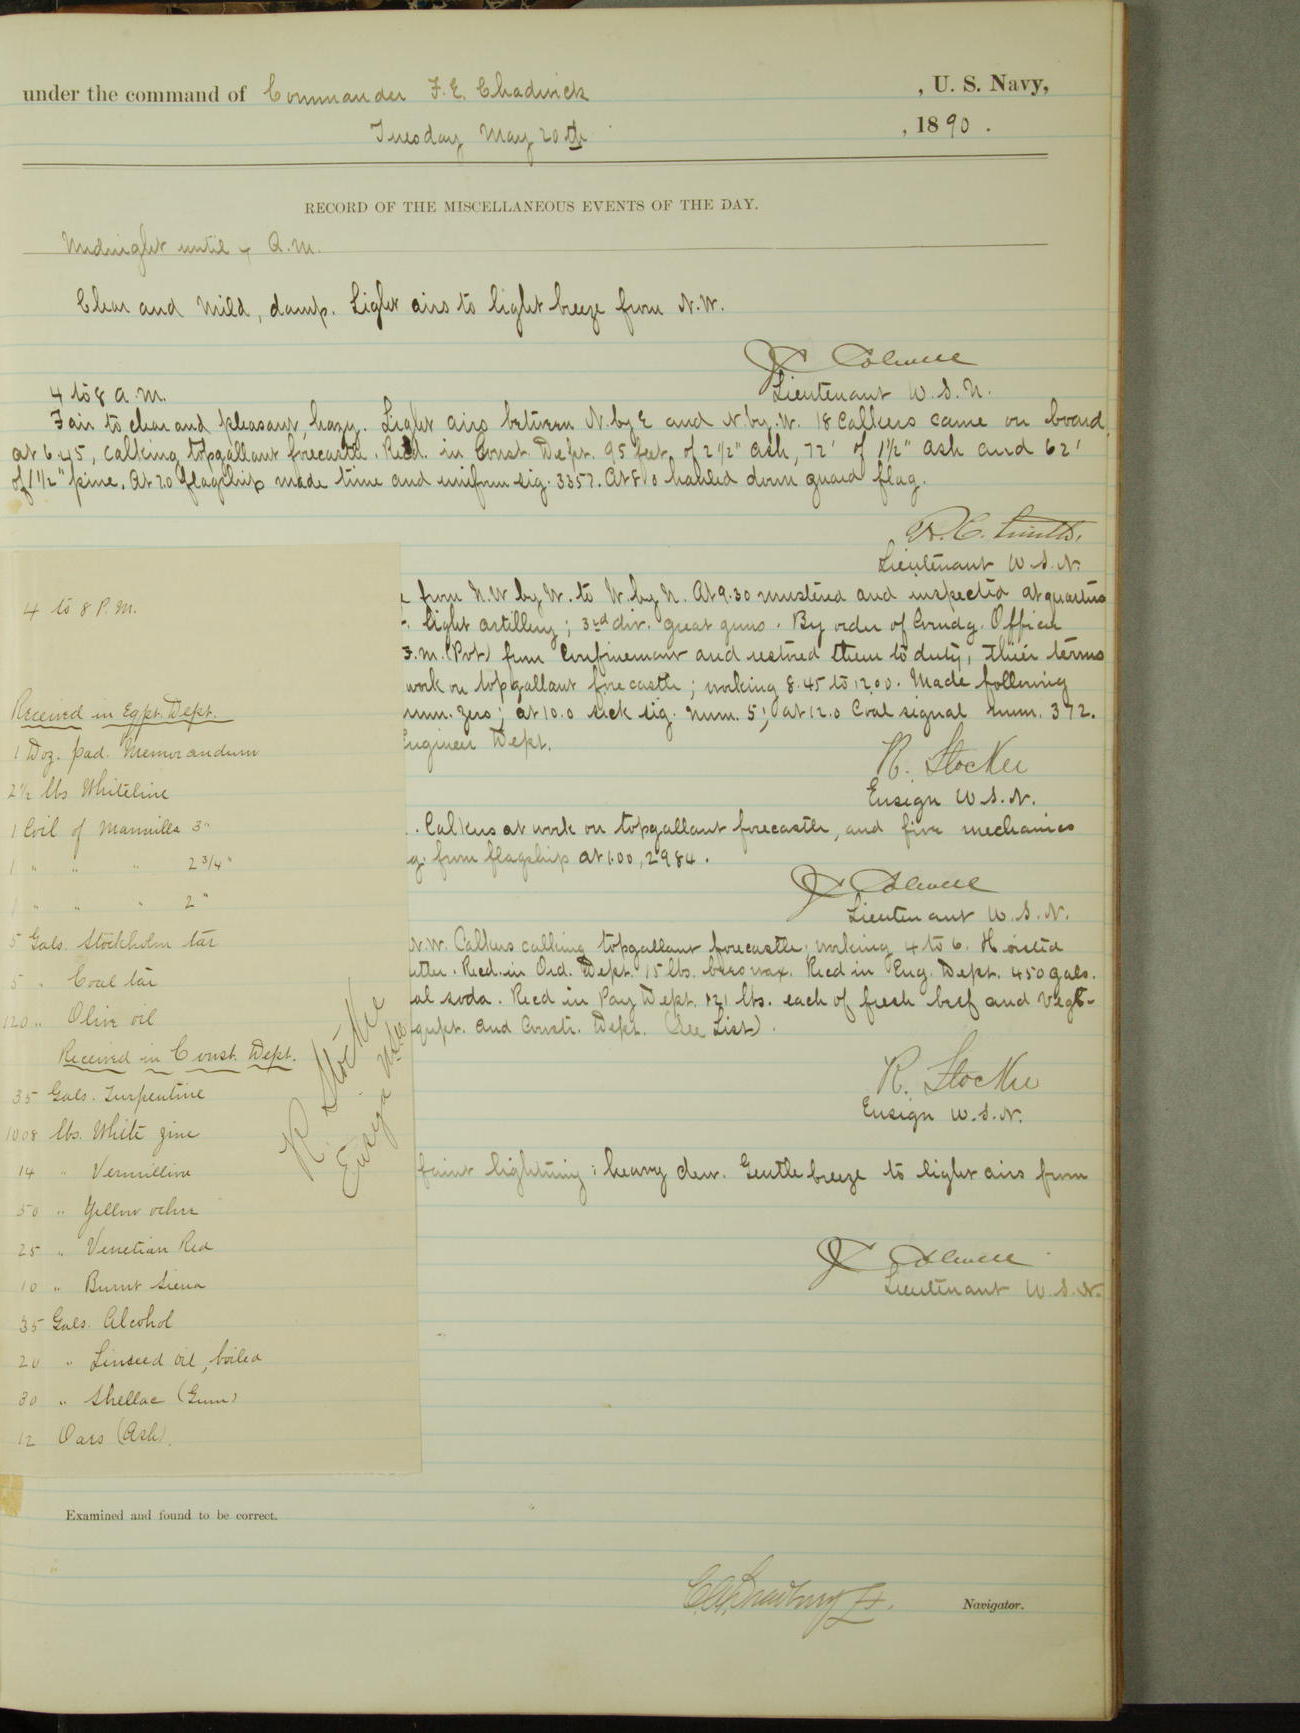 under the command of Commander F. E. Chadwick , U. S. Navy,
Tuesday May 20th , 1890 .
RECORD OF THE MISCELLANEOUS EVENTS OF THE DAY.
Midnight until 4 A.M.
Clear and mild, damp. Light airs to light breeze from N.W.
J C Colwell
Lieutenant U.S.N.
4 to 8 A.M.
Fair to clear and pleasant, hazy. Light airs between N. by E and N. by W. 18 Calkers came on board
at 6.45, calking topgallant forecastle. Recd. in Const. Dept. 95 feet of 2 1/2" ash, 72' of 1 1/2" ash and 62'
of 1 1/2" pine. At 7.0 flagship made time and uniform sig. 3357. At 8.0 hauled down guard flag.
R. C. Smith,
Lieutenant U.S.N.
from N.W by W. to W. by N. At 9.30 mustered and inspected at quarters
light artillery; 3rd div. great guns. By order of Comdg. Officer
F.M. (Pvt) from confinement and restored them to duty, their terms
work on topgallant forecastle; working 8.45 to 12.00. Made following
num. zero; at 10.0 sick sig. num. 5; at 12.0 Coal signal num. 372.
Engineer Dept.
R. Stocker
Ensign U.S.N.
. Calkers at work on topgallant forecastle, and five mechanics
g. from flagship at 1.00, 2984.
J C Colwell
Lieutenant U.S.N.
N.W. Calkers calking topgallant forecastle; working 4 to 6. Hoisted
utter. Recd. in Ord. Dept. 15 lbs. beeswax. Recd in Eng. Dept. 450 gals.
al soda. Recd in Pay Dept. 121 lbs. each of fresh beef and veget-
qupt. and Constr. Dept. (See List).
R. Stocker
Ensign U.S.N.
faint lightning; heavy dew. Gentle breeze to light airs from
J C Colwell
Lieutenant U.S.N.
4 to 8 P.M.
Received in Eqpt. Dept.
1 Doz. pad. Memorandum
2 1/2 lbs Whiteline
1 Coil of Mannilla 3"
1 " " " 2 3/4"
1 " " " 2"
5 Gals. Stockholm tar
5 " Coal tar
120 " Olive oil
Received in Const. Dept.
35 Gals. Turpentine
1008 lbs. White zinc
14 " Vermillion
50 " Yellow ochre
25 " Venetian Red
10 " Burnt Siena
35 Gals. Alcohol
20 " Linseed oil, boiled
30 " Shellac (Gum)
12 Oars (Ash).
R Stocker
Ensign U.S.N.
Examined and found to be correct.
Navigator.